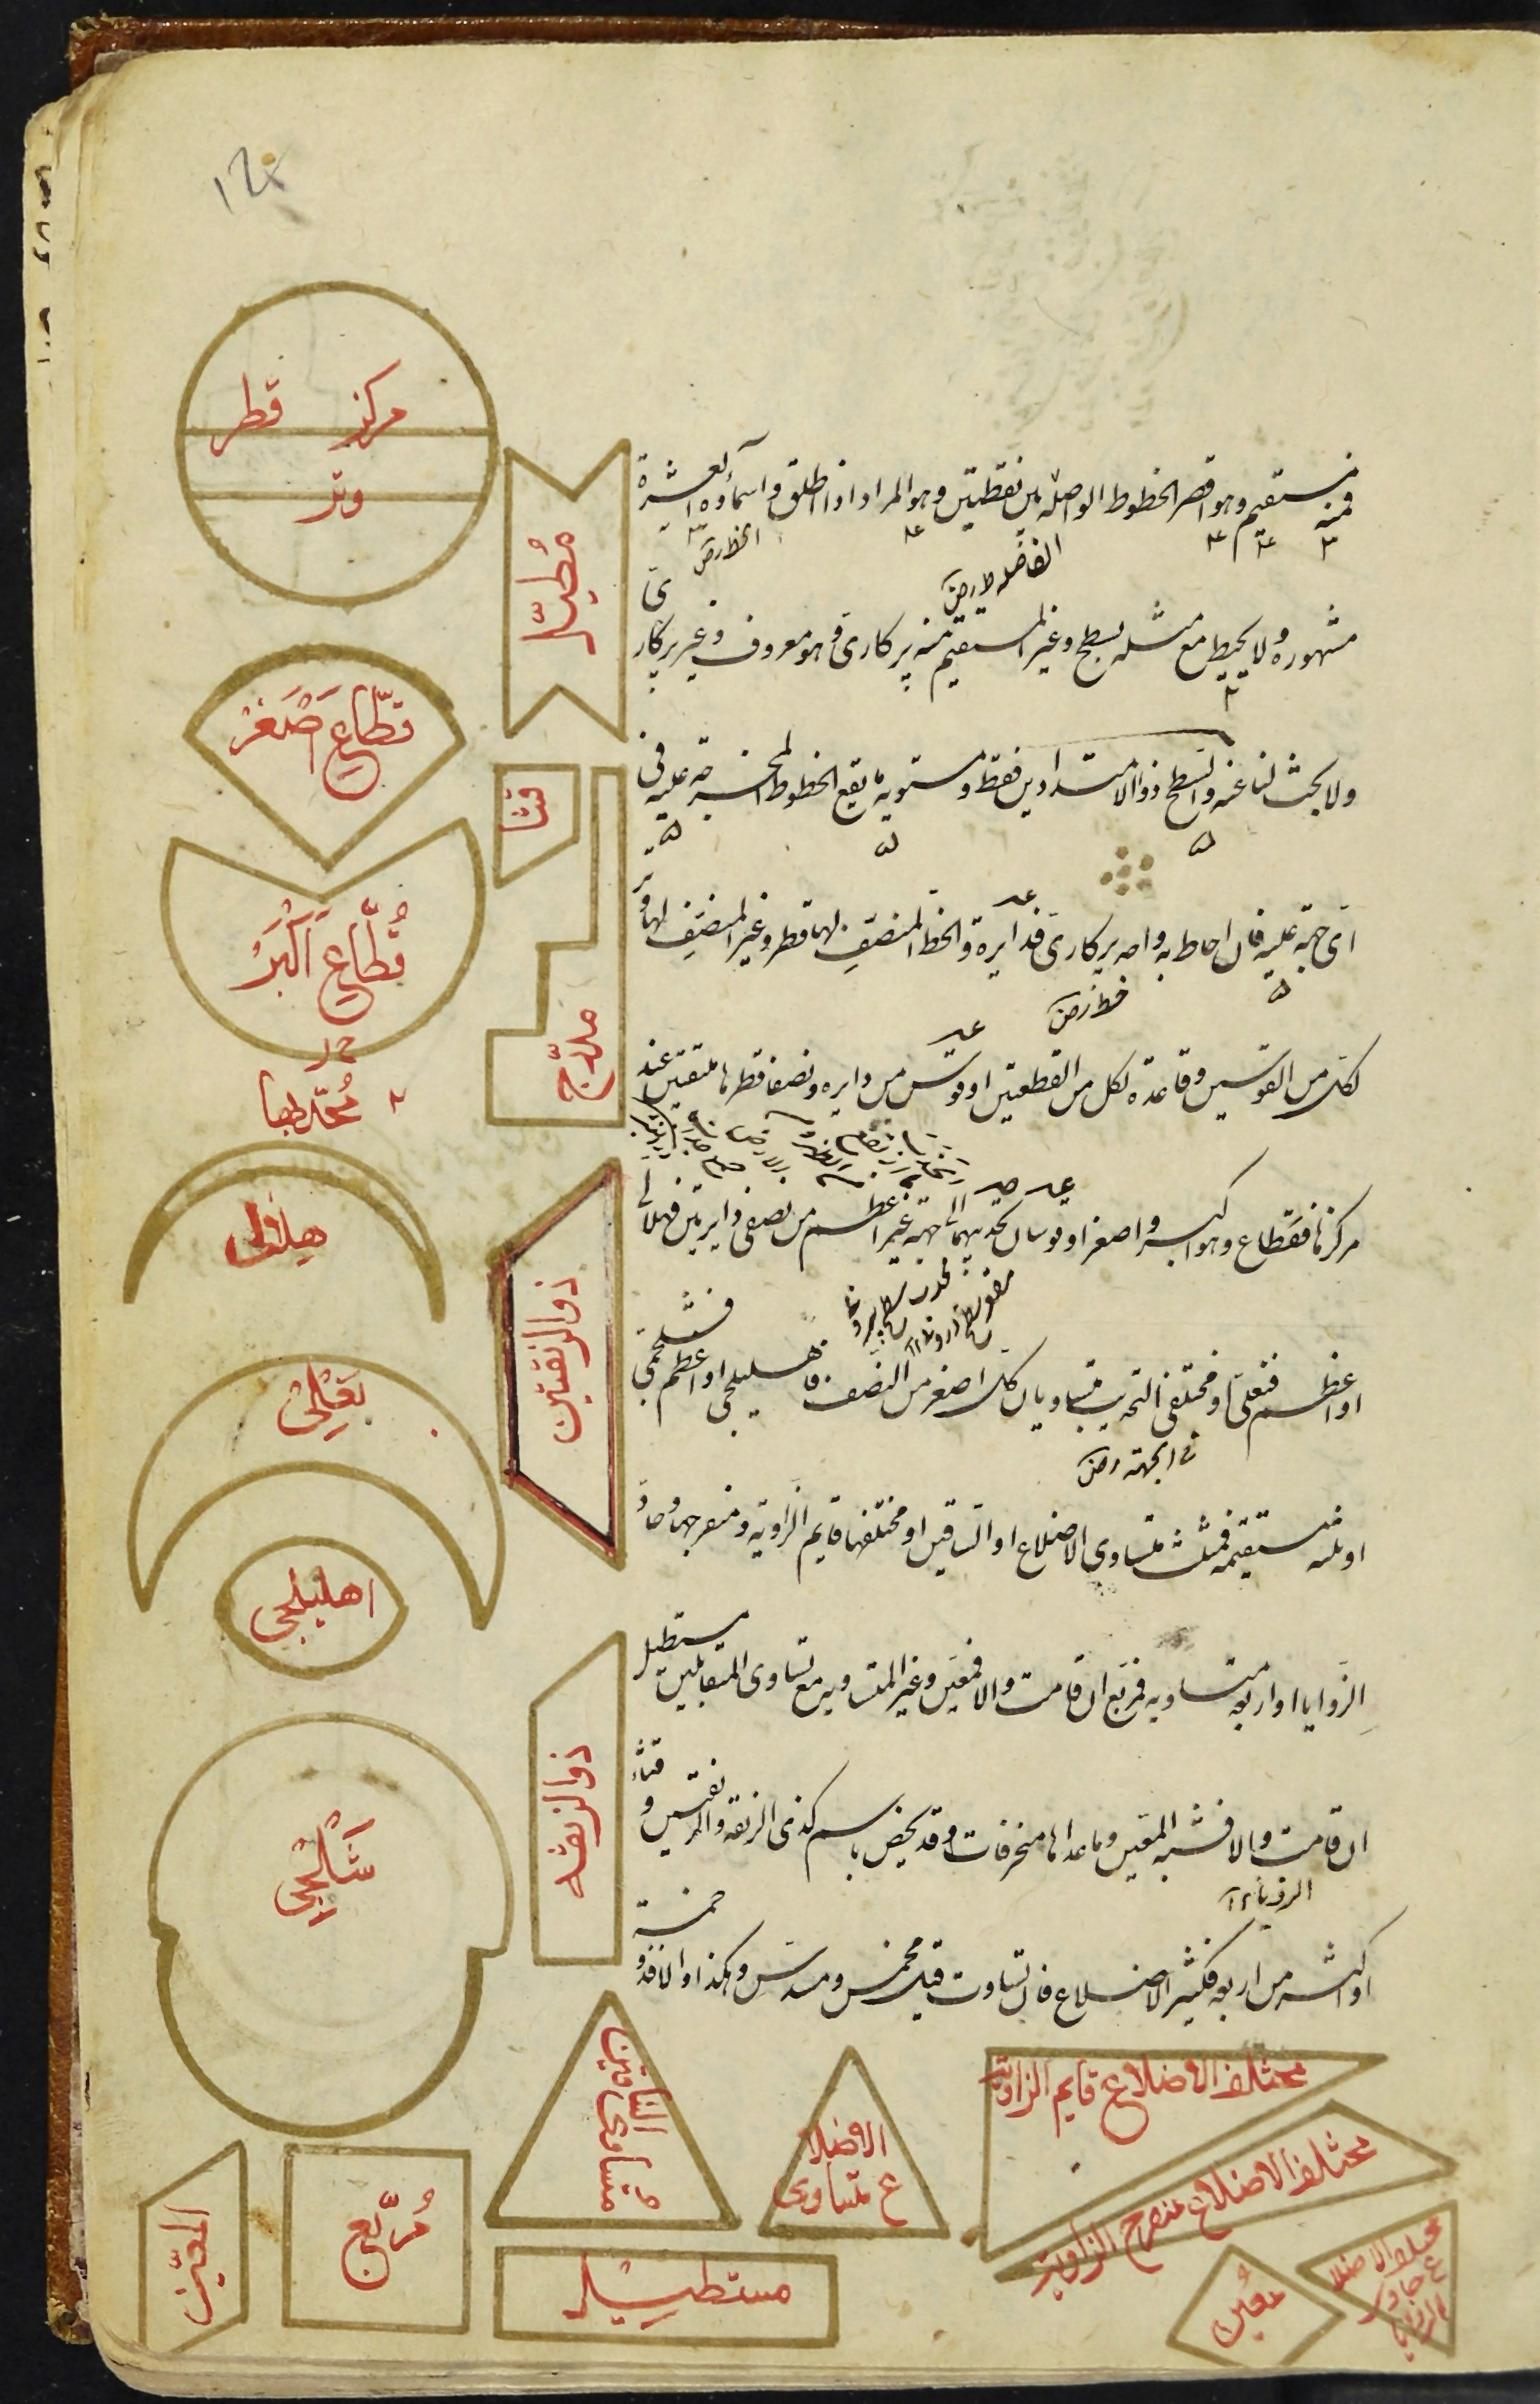 فمنه مستقيم وهو اقصر الخطوط الواصلة بين نقطتين وهو المراد اذا اطلق واسمآؤه العشرة
مشهورة ولا يحيط مع مثله بسطح وغير المستقيم منه پركارى وهو معروف وغير پركارى
ولا بحث لنا عنه والسطح ذو الامتدادين فقط ومستويه ما يقع الخطوط المخرجة عليه فى
اى جهة عليه فان احاط به واحد پركارى فدايرة والخط المنصف لها قطر وغير المنصف لها وتر
لكل من القوسين وقاعدة لكل من القطعتين او قوس من دايره ونصفا قطرها ملتقيين عند
مركزها فقطاع وهو اكبر واصغر او قوسان تحديبهما الى جهة غير اعظم من نصفى دايرتين فهلالى
او اعظم فنعلى او مختلفى التحديب متساويان كل اصغر من النصف فاهليلجى او اعظم فشلجمى
او ثلثه مستقيمة فمثلث متساوى الاضلاع او الساقين او مختلفها قايم الزاوية ومنفرجها وحاد
الزوايا او اربعة متساويه فمربع ان قامت والا فمعين وغير المتساويه مع تساوى المتقابلين مستطيل
ان قامت والا فشبه المعين وما عداها منحرفات وقد يخص باسم كذى الزنقة والزنقتين وقثاء
او اكثر من اربعة فكثير الاضلاع فان تساوت قيل مخمس ومسدس وهكذا والا فذو خمسة
مركز
قطر
وتر
مطبل
قطاع اصغر
قثا
قطاع اكبر
مدرج
هلالى
ذو الزنقتين
نعلى
اهليلجى
ذو الزنقه
شلجمى
متساوى الساقين
الاضلا
ع متساوى
مختلف الاضلاع قايم الزاوية
مختلف الاضلاع منفرج الزاوية
مختلف الاضلا
ع حاد
الزوايا
المعين
مربع
مستطيل
معين